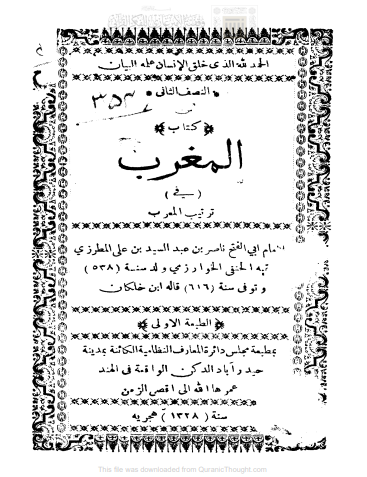 الحمد لله الذى خلق الانسان علمه البيان
النصف الثانى
٣٥٣
من
كتاب
المغرب
( فى )
ترتيب المعرب
امام ابي الفتح ناصر بن عبد السيد بن على المطرزي
الحنفى الخوارزمي ولد سنة ( ٥٣٨ )
و توفى سنة (٦١٦) قاله ابن خلكان
الطبعة الاولى
بمطبعة مجلس دائرة المعارف النظامية الكائنة بمدينة
حيدر آباد الدكن الواقعة فى الهند
عمرها الله الى اقصى الزمن
سنة ( ١٣٢٨ ) هجريه
This file was downloaded from QuranicThought.com